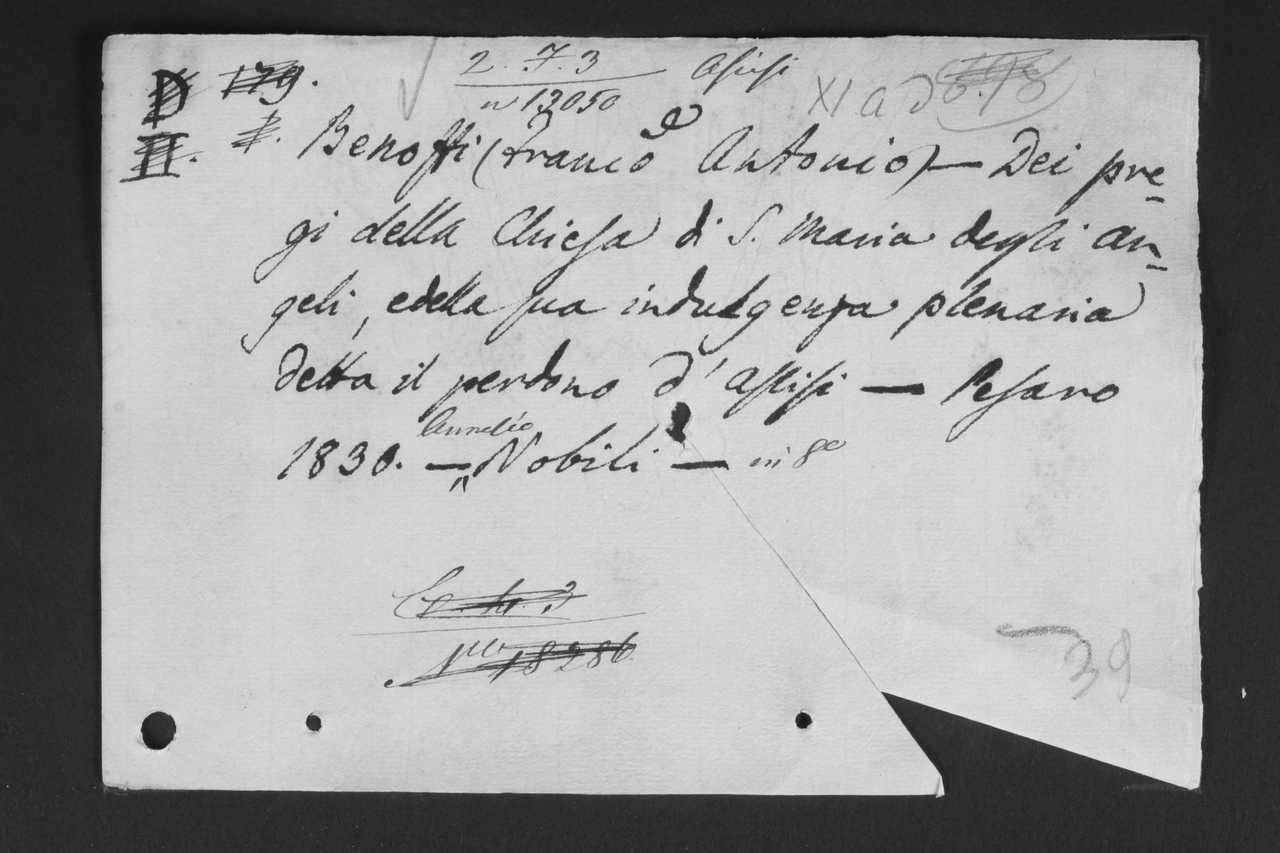 D 179. 2. 7. 3 Assisi
II. n 12050 XI a d
Benoffi (Franco Antonio) — Dei pre-
gi della Chiesa di S. Maria degli An-
geli, e della sua indulgenza plenaria
detta il perdono d'Assisi — Pesaro
1830. — Nobili — in 8o
Annesio
18286
39